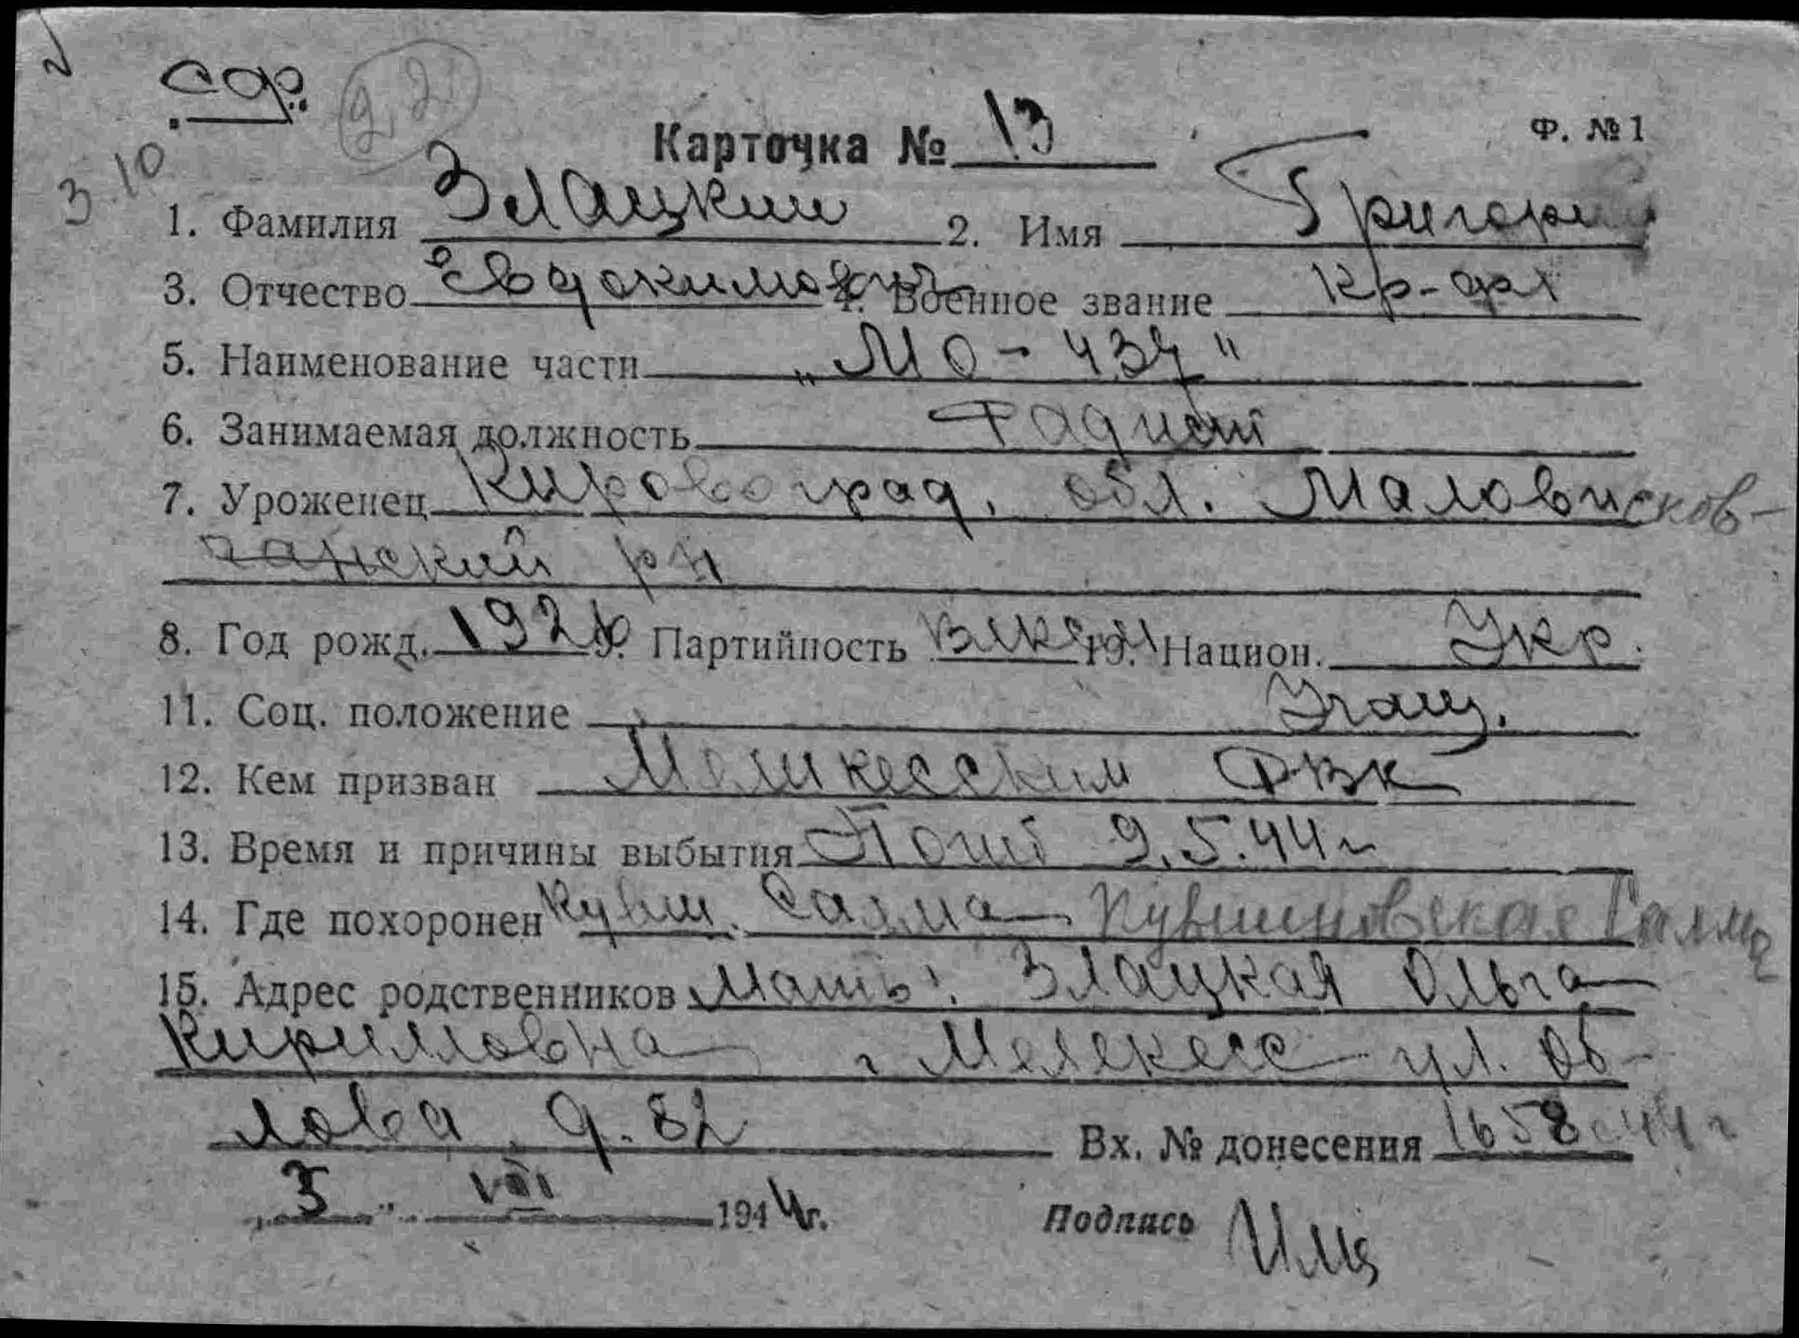 сф.
3.10
Карточка № 13
Ф. № 1
1. Фамилия Злацкий 2. Имя Григорий
3. Отчество Евдокимович 4. Военное звание кр-фл
5. Наименование части „МО-434"
6. Занимаемая должность Радист
7. Уроженец Кировоград. обл. Маловисков-
чанский рн
8. Год рожд. 1926 9. Партийность ВЛКСМ 10. Национ. Укр.
11. Соц. положение Учащ.
12. Кем призван Мелекесским РВК
13. Время и причины выбытия Погиб 9.5.44 г
14. Где похоронен Кувш. Салма Кувшиновская Салма
15. Адрес родственников Мать: Злацкая Ольга
Кирилловна г Мелекесс ул. Об-
лова д. 82
Вх. № донесения 1658с 44 г
„ 3 " VIII 1944 г.
Подпись